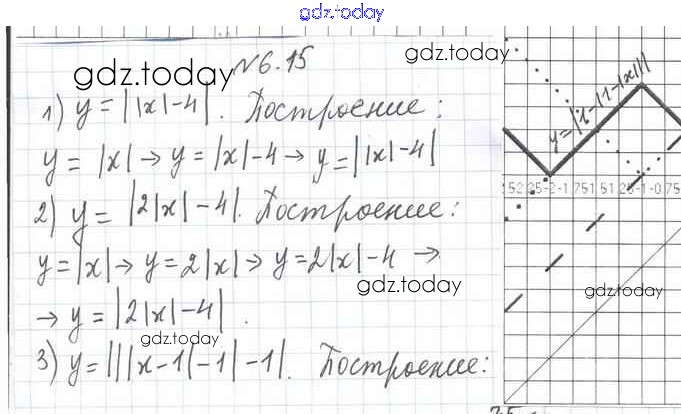 gdz.today
№6.15
gdz.today
gdz.today
1) y = ||x|-4|. Построение:
y = |x| → y = |x|-4 → y = ||x|-4|
2) y = |2|x|-4|. Построение:
y = |x| → y = 2|x| → y = 2|x|-4 →
gdz.today
→ y = |2|x|-4|.
gdz.today
3) y = |||x-1|-1|-1|. Построение:
-2
-1
gdz.today